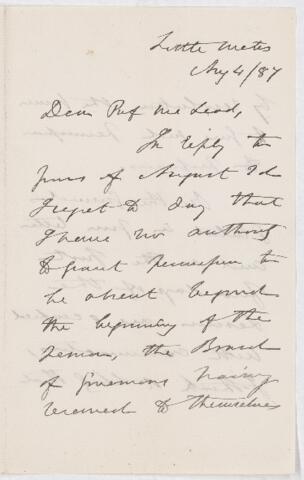 Little Metis
Aug 4/87
Dear Prof McLeod,
In reply to
yours of August 2d
I regret to say that
I have no authority
to grant permission to
be absent beyond
the beginning of the
session, the Board
of Governors having
reserved to themselves